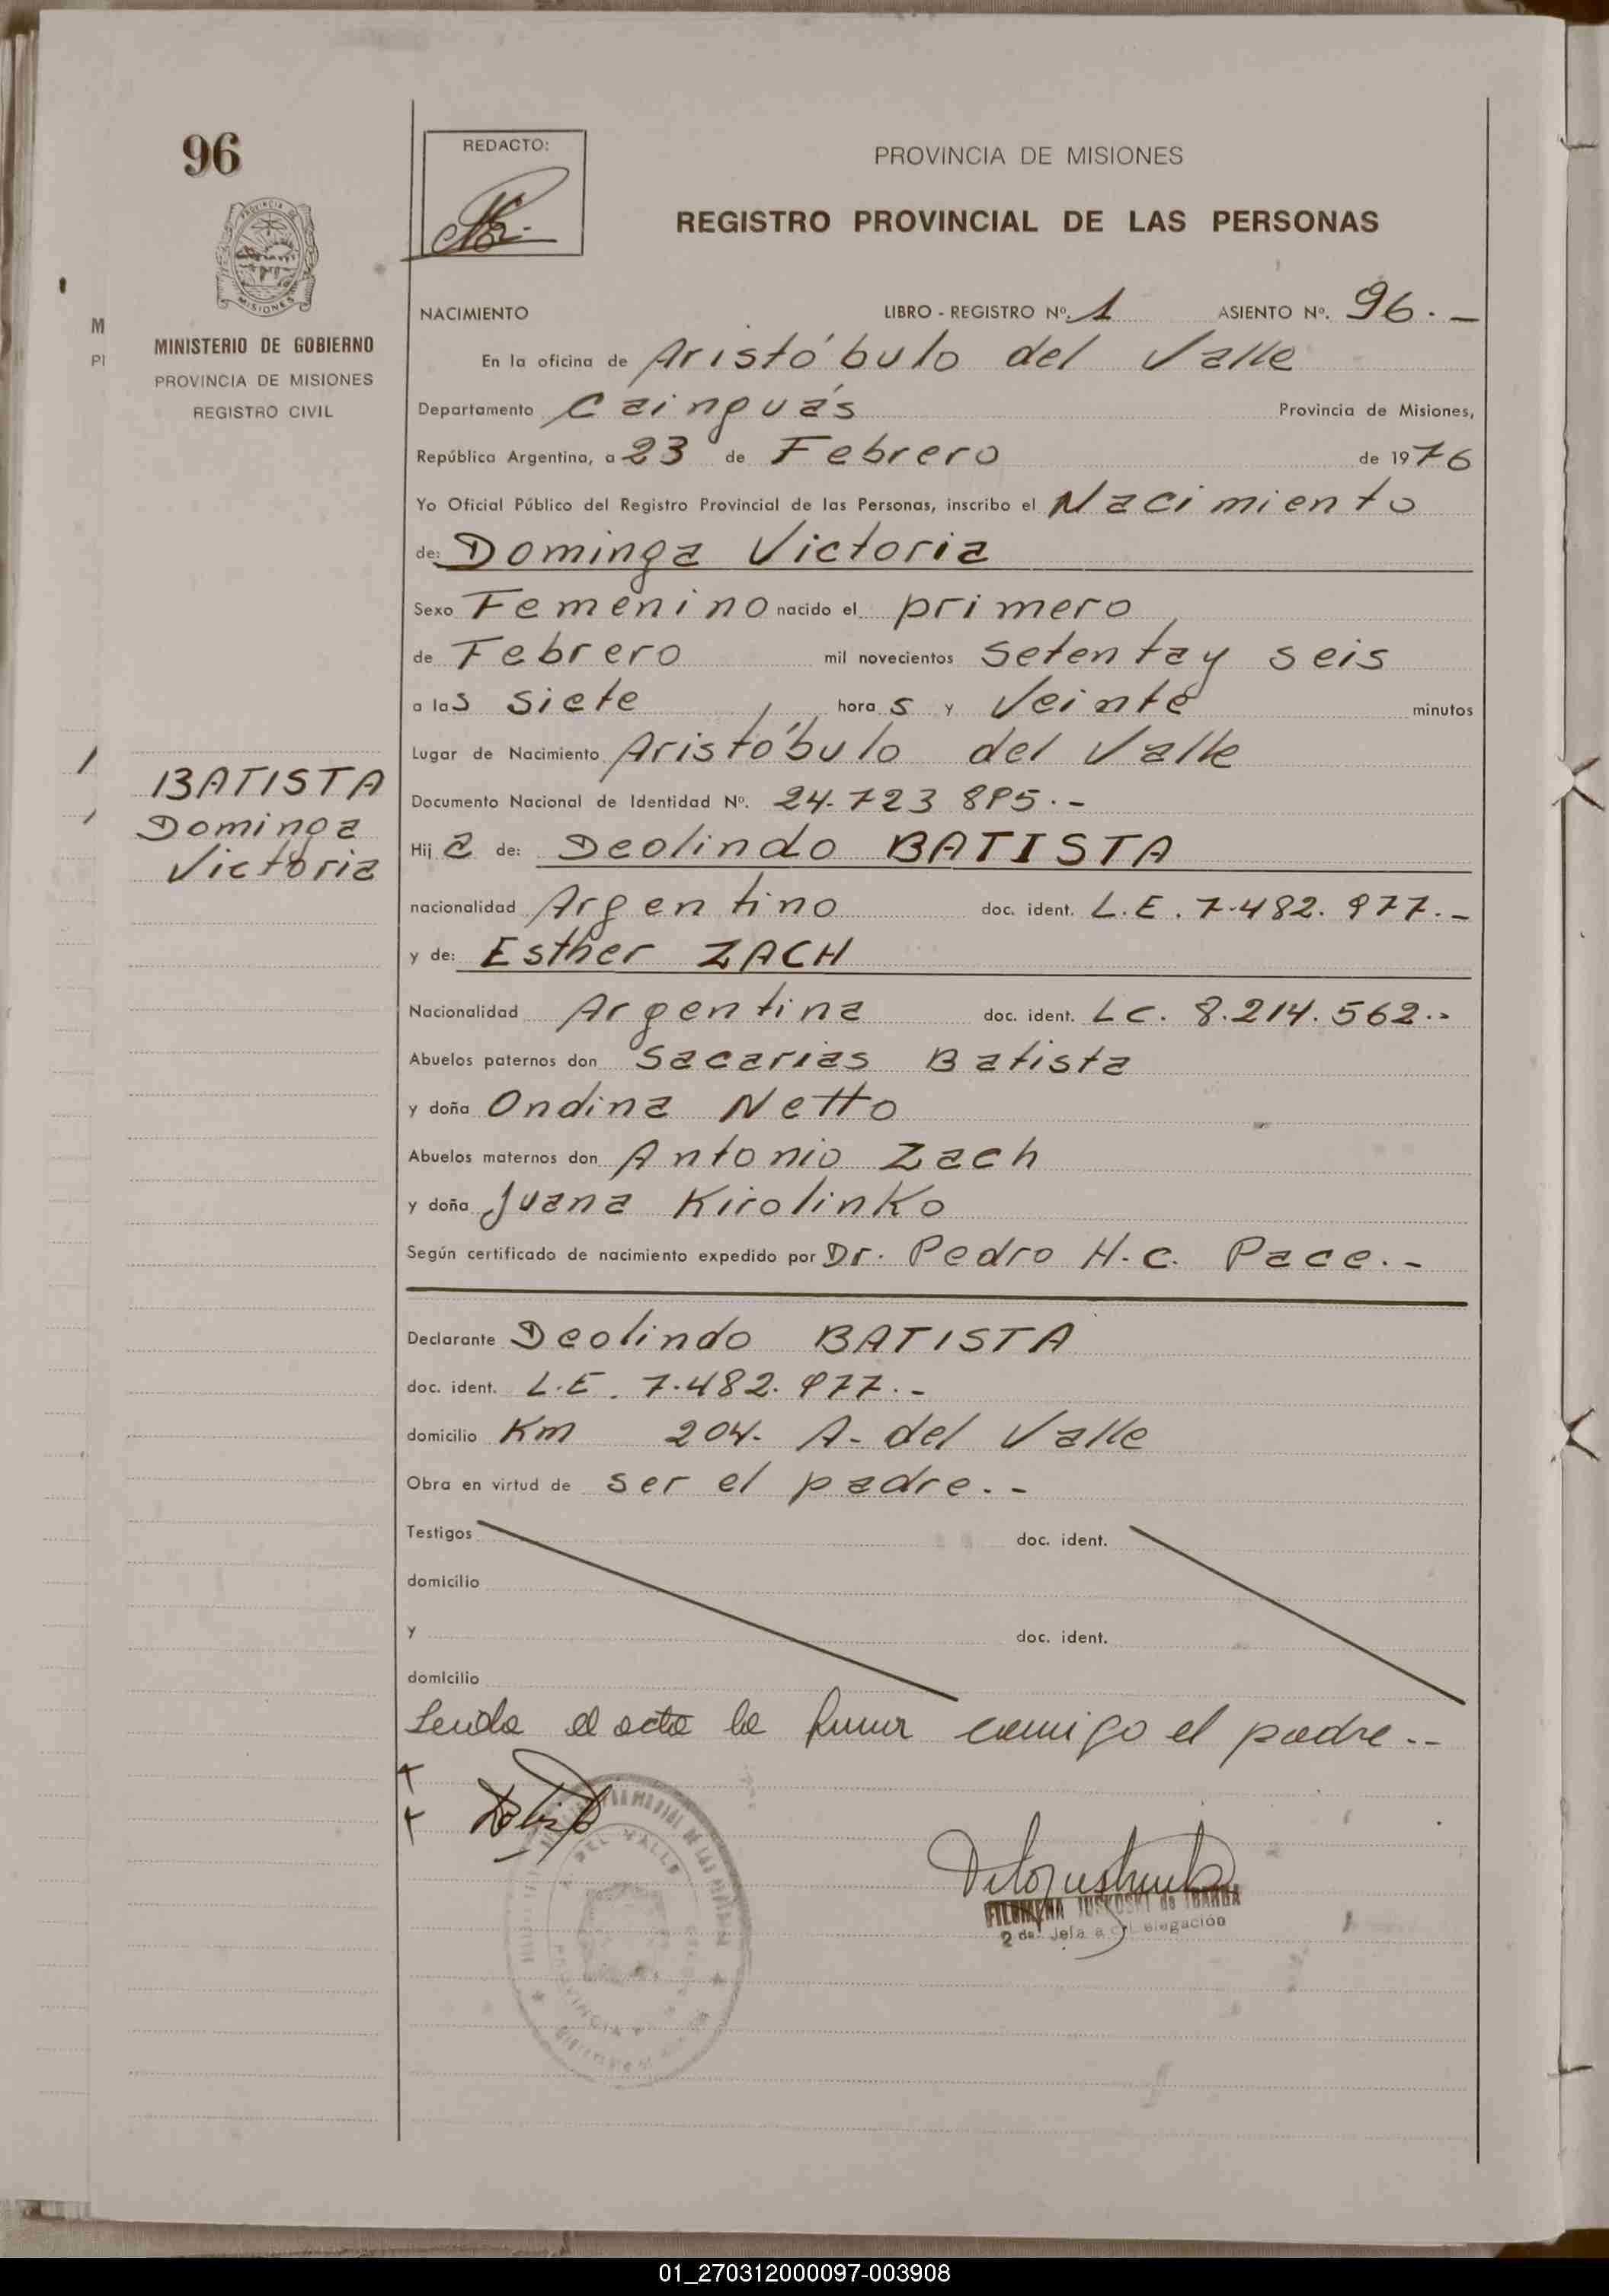 96
REDACTO:
PROVINCIA DE MISIONES
REGISTRO PROVINCIAL DE LAS PERSONAS
PROVINCIA DE
MISIONES
MINISTERIO DE GOBIERNO
PROVINCIA DE MISIONES
REGISTRO CIVIL
M
PI
NACIMIENTO LIBRO - REGISTRO Nº. 1 ASIENTO Nº. 96.-
En la oficina de Aristóbulo del Valle
Departamento Cainguás Provincia de Misiones,
República Argentina, a 23 de Febrero de 1976
Yo Oficial Público del Registro Provincial de las Personas, inscribo el Nacimiento
de: Dominga Victoria
Sexo Femenino nacido el primero
de Febrero mil novecientos setenta y seis
a las siete horas y veinte minutos
Lugar de Nacimiento Aristóbulo del Valle
BATISTA
Dominga
Victoria
Documento Nacional de Identidad Nº. 24.723 895.-
Hija de: Deolindo BATISTA
nacionalidad Argentino doc. ident. L.E. 7.482.977.-
y de: Esther ZACH
Nacionalidad Argentina doc. ident. LC. 8.214.562.-
Abuelos paternos don Sacarias Batista
y doña Ondina Netto
Abuelos maternos don Antonio Zach
y doña Juana Kirolinko
Según certificado de nacimiento expedido por Dr. Pedro H.C. Pace.-
Declarante Deolindo BATISTA
doc. ident. L.E. 7.482.977.-
domicilio Km 204. A. del Valle
Obra en virtud de ser el padre.-
Testigos doc. ident.
domicilio
y doc. ident.
domicilio
Leida el acta la firma comigo el padre.--
DEL VALLE
PROVINCIA
FILOMENA JUSKOSKI de IBARRA
2 da. Jefa a Delegación
01_270312000097-003908